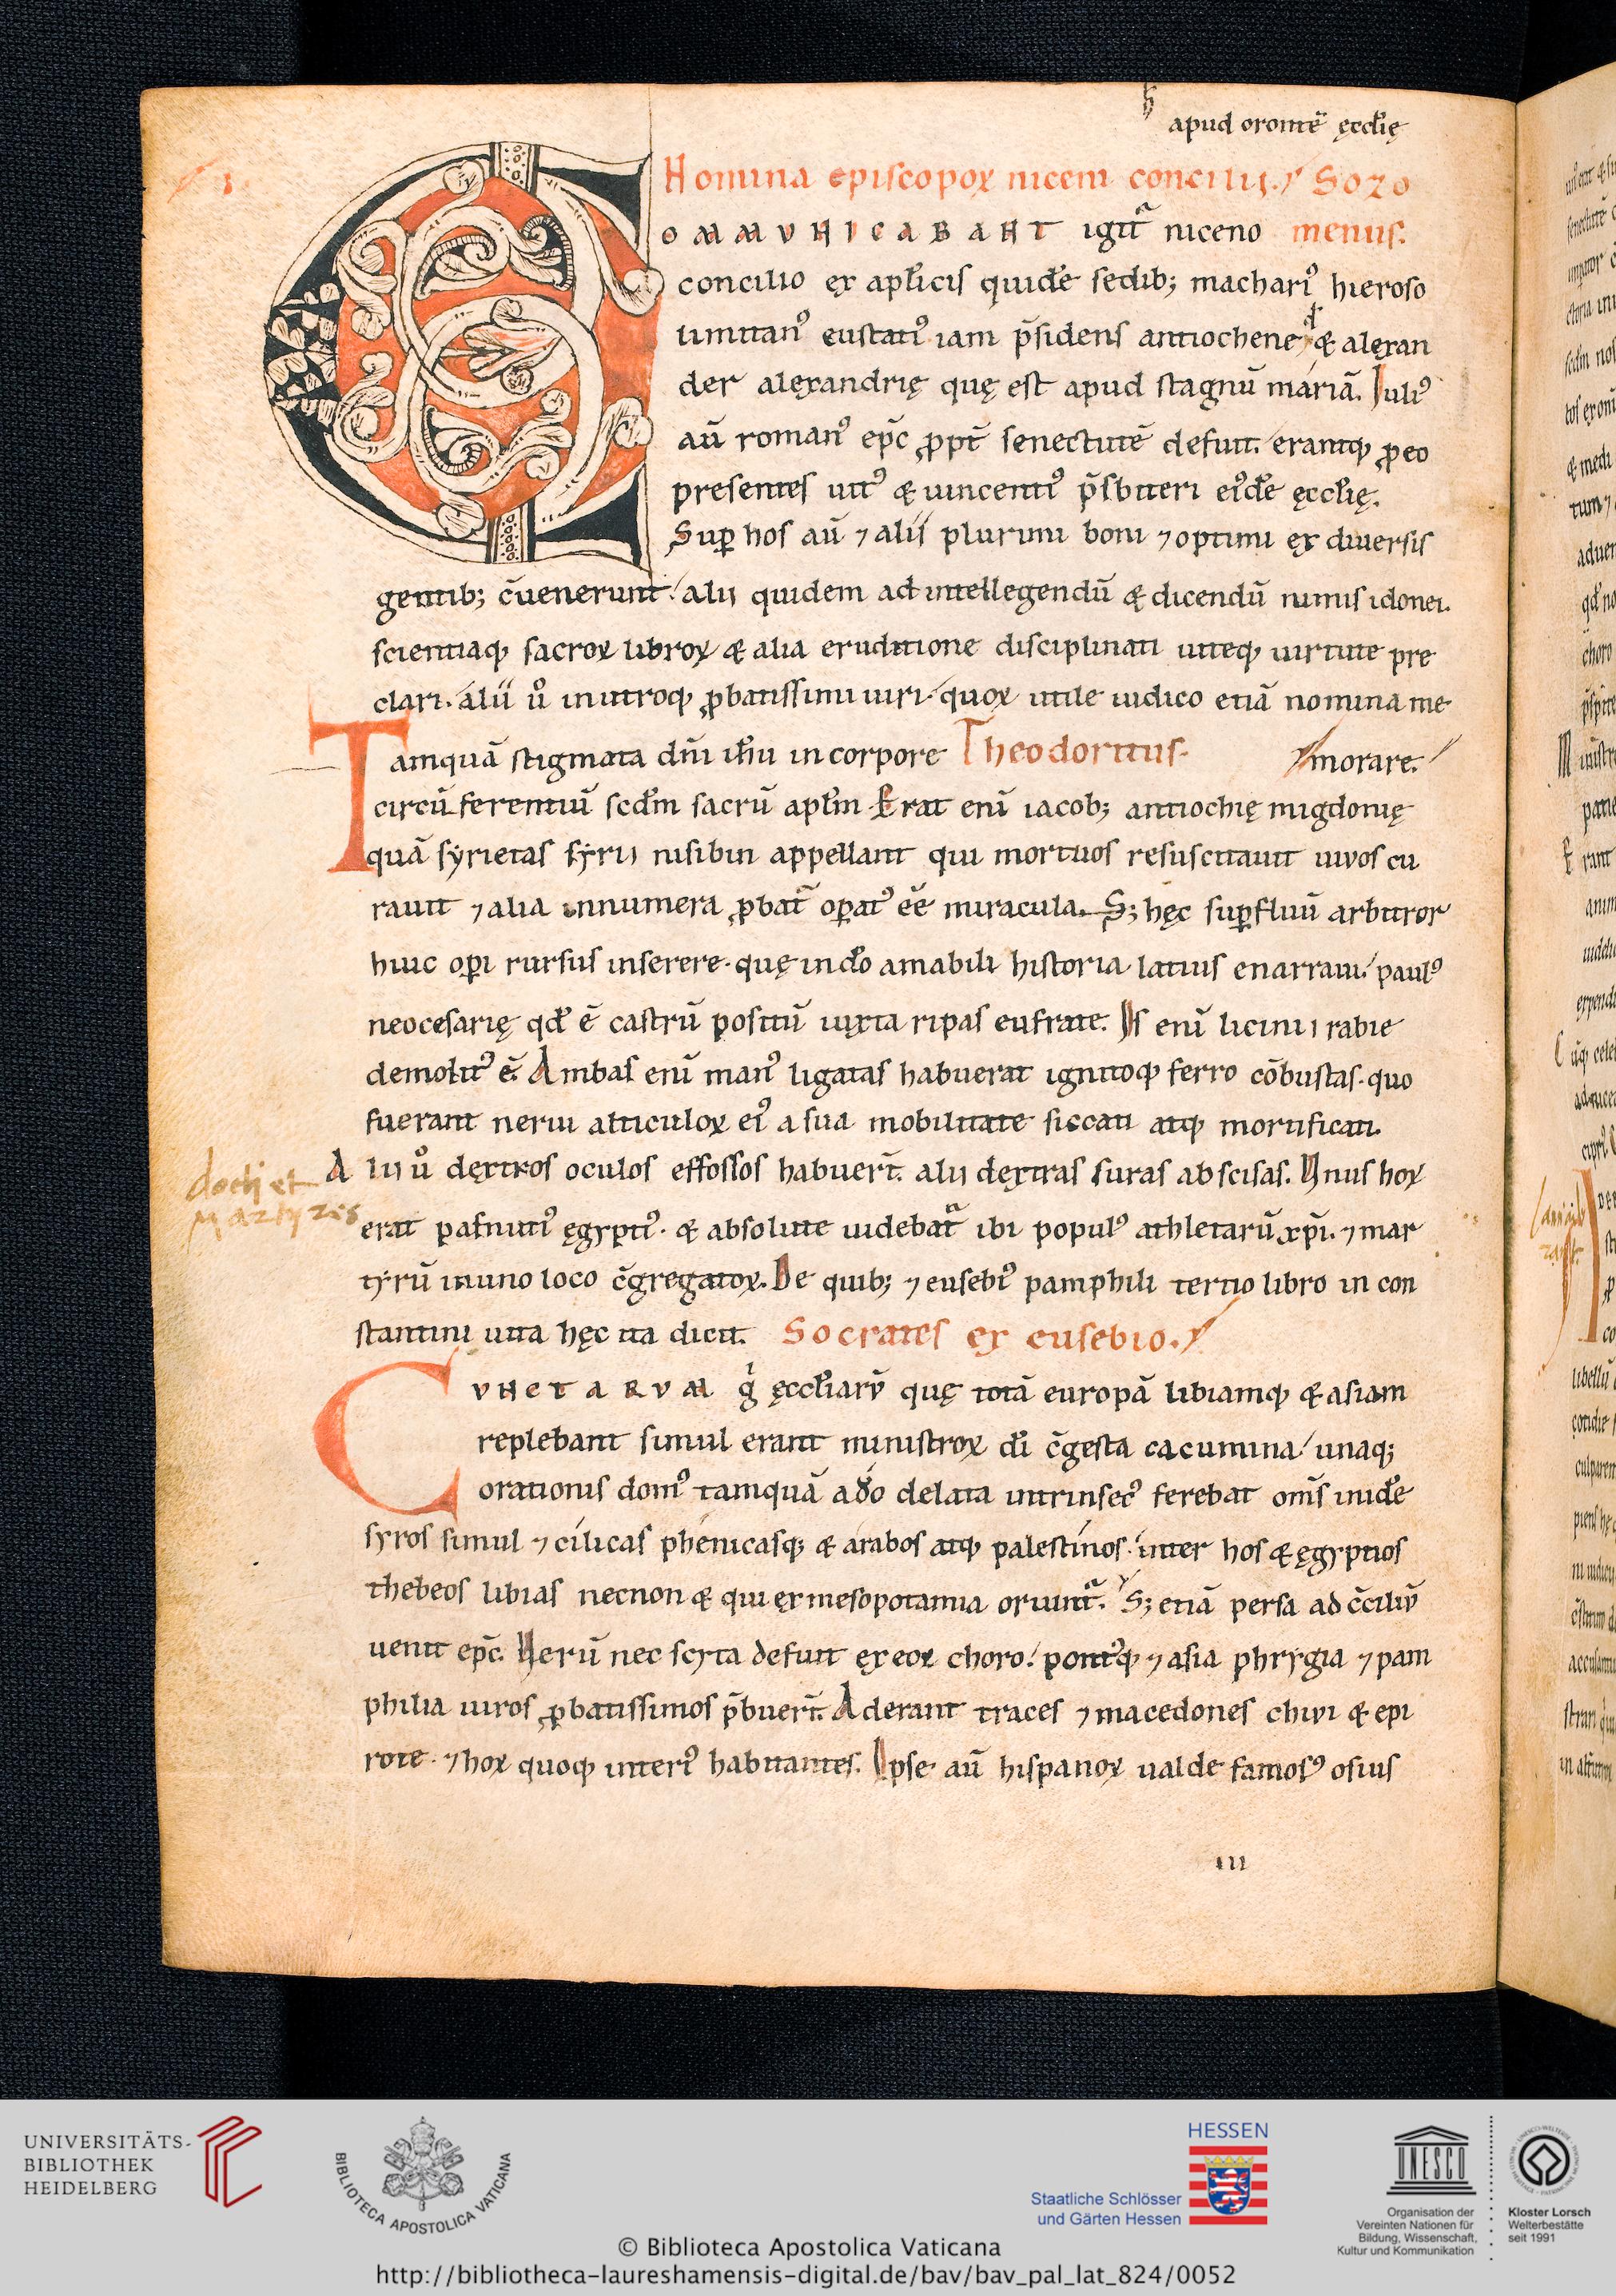 apud orontē ęccl̄ię
Nomina episcopoꝝ niceni concilii. Sozo
OMMVNICABANT igit̃ niceno menus.
concilio ex apl̄icis quidē sedib; machariꝰ hieroso
limitanꝰ eustatiꝰ iam p̄sidens antiochenę & alexan
der alexandrię quę est apud stagnū mariā. Iuliꝰ
aū romanꝰ ep̄c ꝓpt̄ senectutē defuit. erantqꝫ ꝓ eo
presentes uitꝰ & uincentiꝰ p̄sbiteri eiꝰdē ęccl̄ię.
Sup̱ hos aū ⁊ alii plurimi boni ⁊ optimi ex diuersis
gentib; c̄uenerunt. alii quidem ad intellegendū & dicendū nimis idonei.
scientiaqꝫ sacroꝝ libroꝝ & alia eruditione disciplinati uiteqꝫ uirtute pre
clari. alii u̾o in utroqꝫ ꝓbatissimi uiri. quoꝝ utile iudico etiā nomina me
Tamquā stigmata dn̄i ih̄u in corpore Theodoritus. morare.
circūferentiū scd̄m sacrū apl̄m Erat enī iacob; antiochię migdonię
quā syrietas syrii nisibin appellant qui mortuos resuscitauit uiuos cu
rauit ⁊ alia innumera ꝓbat̃ op̱atꝰ eē miracula. S; hęc sup̱fluū arbitror
huic op̱i rursus inserere. quę in dō amabili historia latius enarraui. paulꝰ
neocesarię qd̄ ē castrū positū iuxta ripas eufrate. Is enī licinii rabie
demolitꝰ ē. Ambas enī manꝰ ligatas habuerat ignitoqꝫ ferro cōbustas. quo
fuerant nerui atticuloꝝ eiꝰ a sua mobilitate siccati atqꝫ mortificati.
Alii u̾o dextros oculos effossos habuer̄t. alii dextras suras abscisas. Vnus hoꝝ
docti et
martyres
erat pafnutiꝰ ęgyptiꝰ. & absolute uidebat̃ ibi populꝰ athletarū xp̄i. ⁊ mar
tyrū in uno loco c̄gregatoꝝ. De quib; ⁊ eusebiꝰ pamphili tertio libro in con
stantini uita hęc ita dicit. Socrates ex eusebio.
CVNCTARVM g̍ ęccl̄iarū quę totā europā libiamqꝫ & asiam
replebant simul erant ministroꝝ dī c̄gesta cacumina. unaq;
orationis domꝰ tamquā a dō delata intrinsecꝰ ferebat om̄s inidē
syros simul ⁊ cilicas phenicasq; & arabos atqꝫ palestinos. inter hos & ęgyptios
thebeos libias necnon & qui ex mesopotamia oriunt̃. S; etiā persa ad c̄ciliū
uenit ep̄c. Verū nec scyta defuit ex eoꝝ choro. pontꝰqꝫ ⁊ asia phrygia ⁊ pam
philia uiros ꝓbatissimos p̄buer̄t. Aderant traces ⁊ macedones chiui & epi
rote. ⁊ hoꝝ quoqꝫ interiꝰ habitantes. Ipse aū hispanoꝝ ualde famosꝰ osius
III
UNIVERSITÄTS-
BIBLIOTHEK
HEIDELBERG
BIBLIOTECA APOSTOLICA VATICANA
HESSEN
Staatliche Schlösser
und Gärten Hessen
UNESCO
Organisation der
Vereinten Nationen für
Bildung, Wissenschaft,
Kultur und Kommunikation
Kloster Lorsch
Welterbestätte
seit 1991
© Biblioteca Apostolica Vaticana
http://bibliotheca-laureshamensis-digital.de/bav/bav_pal_lat_824/0052